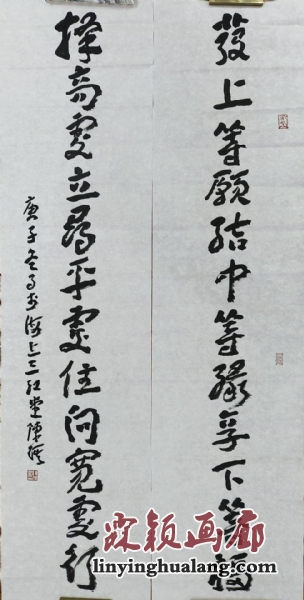 發上等願結中等緣享下等福
择高處立尋平處住向寬處行
庚子冬月書海上三紅堂陳
霖颖画廊
www.linyinghualang.com